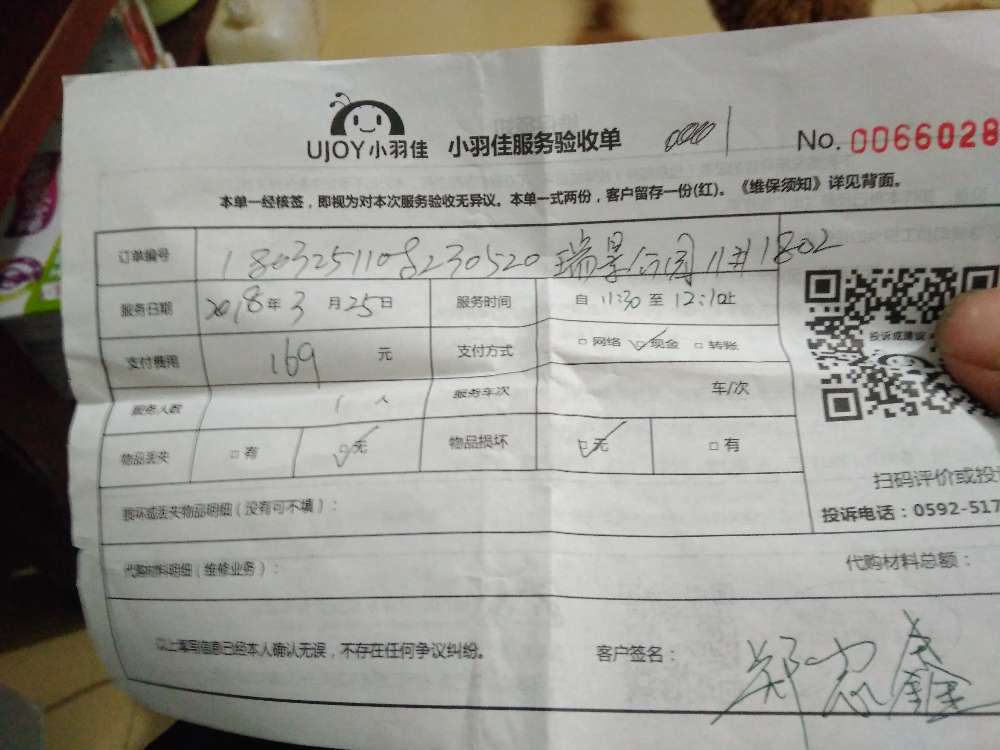 UJOY小羽佳 小羽佳服务验收单 No. 0066028
本单一经核签，即视为对本次服务验收无异议。本单一式两份，客户留存一份(红)。《维保须知》详见背面。
订单编号 1803251108230520 瑞景公园11#1802
服务日期 2018年3月25日 服务时间 自11:30至12:10止
支付费用 169 元 支付方式 □网络 ☑现金 □转账
服务人数 1 人 服务车次 车/次
物品丢失 □有 ☑无 物品损坏 ☑无 □有
投诉或建议
扫码评价或投
投诉电话：0592-517
损坏或丢失物品明细（没有可不填）：
代购材料明细（维修业务）： 代购材料总额：
以上填写信息已经本人确认无误，不存在任何争议纠纷。 客户签名：郑志鑫